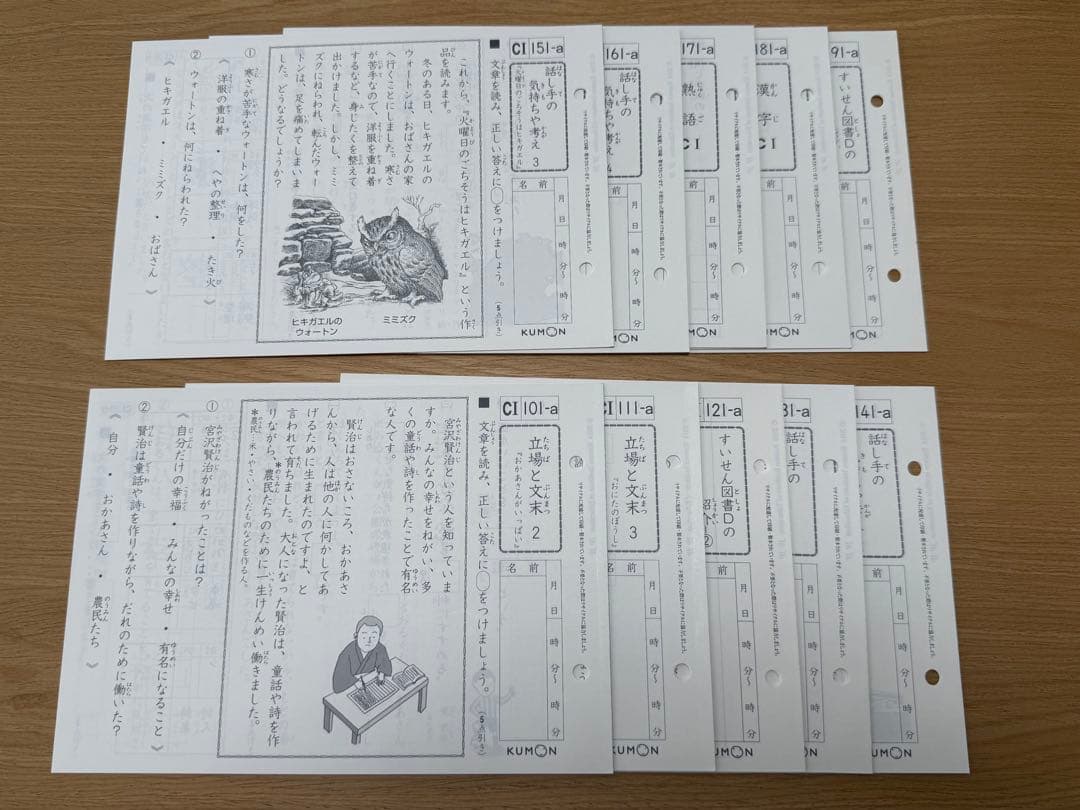 CI 151-a
話し手の
気持ちや考え 3
『火曜日のごちそうはヒキガエル』
名前
月 日 時 分〜 時 分
KUMON
■ 文章を読み、正しい答えに○をつけましょう。
(5点引き)
これから、『火曜日のごちそうはヒキガエル』という作
品を読みます。
冬のある日、ヒキガエルの
ウォートンは、おばさんの家
へ行くことにしました。寒さ
が苦手なので、洋服を重ね着
するなど、身じたくを整えて
出かけました。しかし、ミミ
ズクにねらわれ、転んだウォー
トンは、足を痛めてしまいま
した。どうなるでしょうか?
ミミズク
ヒキガエルの
ウォートン
① 寒さが苦手なウォートンは、何をした?
《 洋服の重ね着 ・ へやの整理 ・ たき火 》
② ウォートンは、何にねらわれた?
《 ヒキガエル ・ ミミズク ・ おばさん 》
161-a
話し手の
気持ちや考え 4
KUMON
171-a
熟語
CI
KUMON
181-a
漢字
CI
KUMON
91-a
すいせん図書Dの
名前
月 日 時 分〜 時 分
KUMON
CI 101-a
立場と文末 2
『おかあさんが、いっぱい』
名前
KUMON
■ 文章を読み、正しい答えに○をつけましょう。
(5点引き)
宮沢賢治という人を知っていま
すか。みんなの幸せをねがい、多
くの童話や詩を作ったことで有名
な人です。
賢治はおさないころ、おかあさ
んから、人は他の人に何かしてあ
げるために生まれたのですよ、と
言われて育ちました。大人になった賢治は、童話や詩を作
りながら、*農民たちのために一生けんめい働きました。
*農民・米・やさい・くだものなどを作る人。
① 宮沢賢治がねがったことは?
《 自分だけの幸福 ・ みんなの幸せ ・ 有名になること 》
② 賢治は童話や詩を作りながら、だれのために働いた?
《 自分 ・ おかあさん ・ 農民たち 》
CI 111-a
立場と文末 3
『おにたのぼうし』
名前
月 日 時 分〜 時 分
KUMON
121-a
すいせん図書Dの
紹介②
KUMON
31-a
話し手の
KUMON
141-a
話し手の
前
月 日 時 分〜 時 分
KUMON